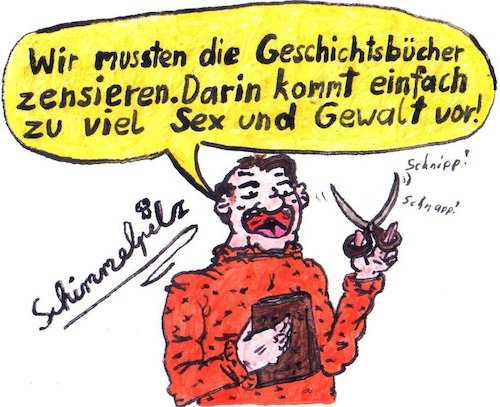 Wir mussten die Geschichtsbücher
zensieren. Darin kommt einfach
zu viel Sex und Gewalt vor!
Schnipp!
Schnapp!
Schimmelpelz